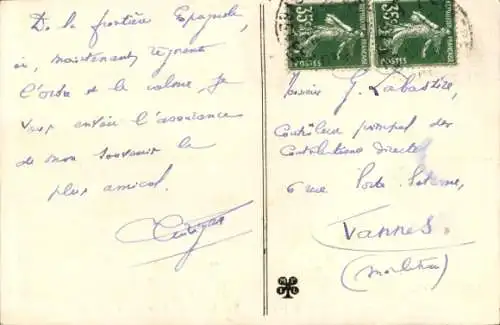 De la frontière Espagnole
où, maintenant règnent
l'ordre et le calme, je
vous envoie l'assurance
de mon souvenir le
plus amical.
35c 35c
POSTES POSTES
Monsieur G. Labastire,
Contrôleur principal des
Contributions Directes
6 rue Porte Poterne,
Vannes.
(Morbihan)